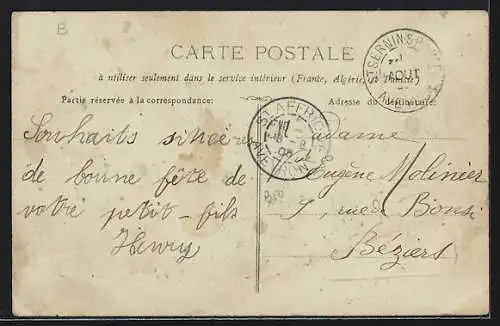 B
CARTE POSTALE
à utiliser seulement dans le service intérieur (France, Algérie et Tunisie)
Partie réservée à la correspondance:
Adresse du destinataire.
ST SERNIN-S
AOUT
ST AFFRIQUE
AVEYRON
Souhaits sincères
de bonne fête de
votre petit-fils
Henry
Madame
Eugène Molinier
9, rue de Bonsi
Béziers